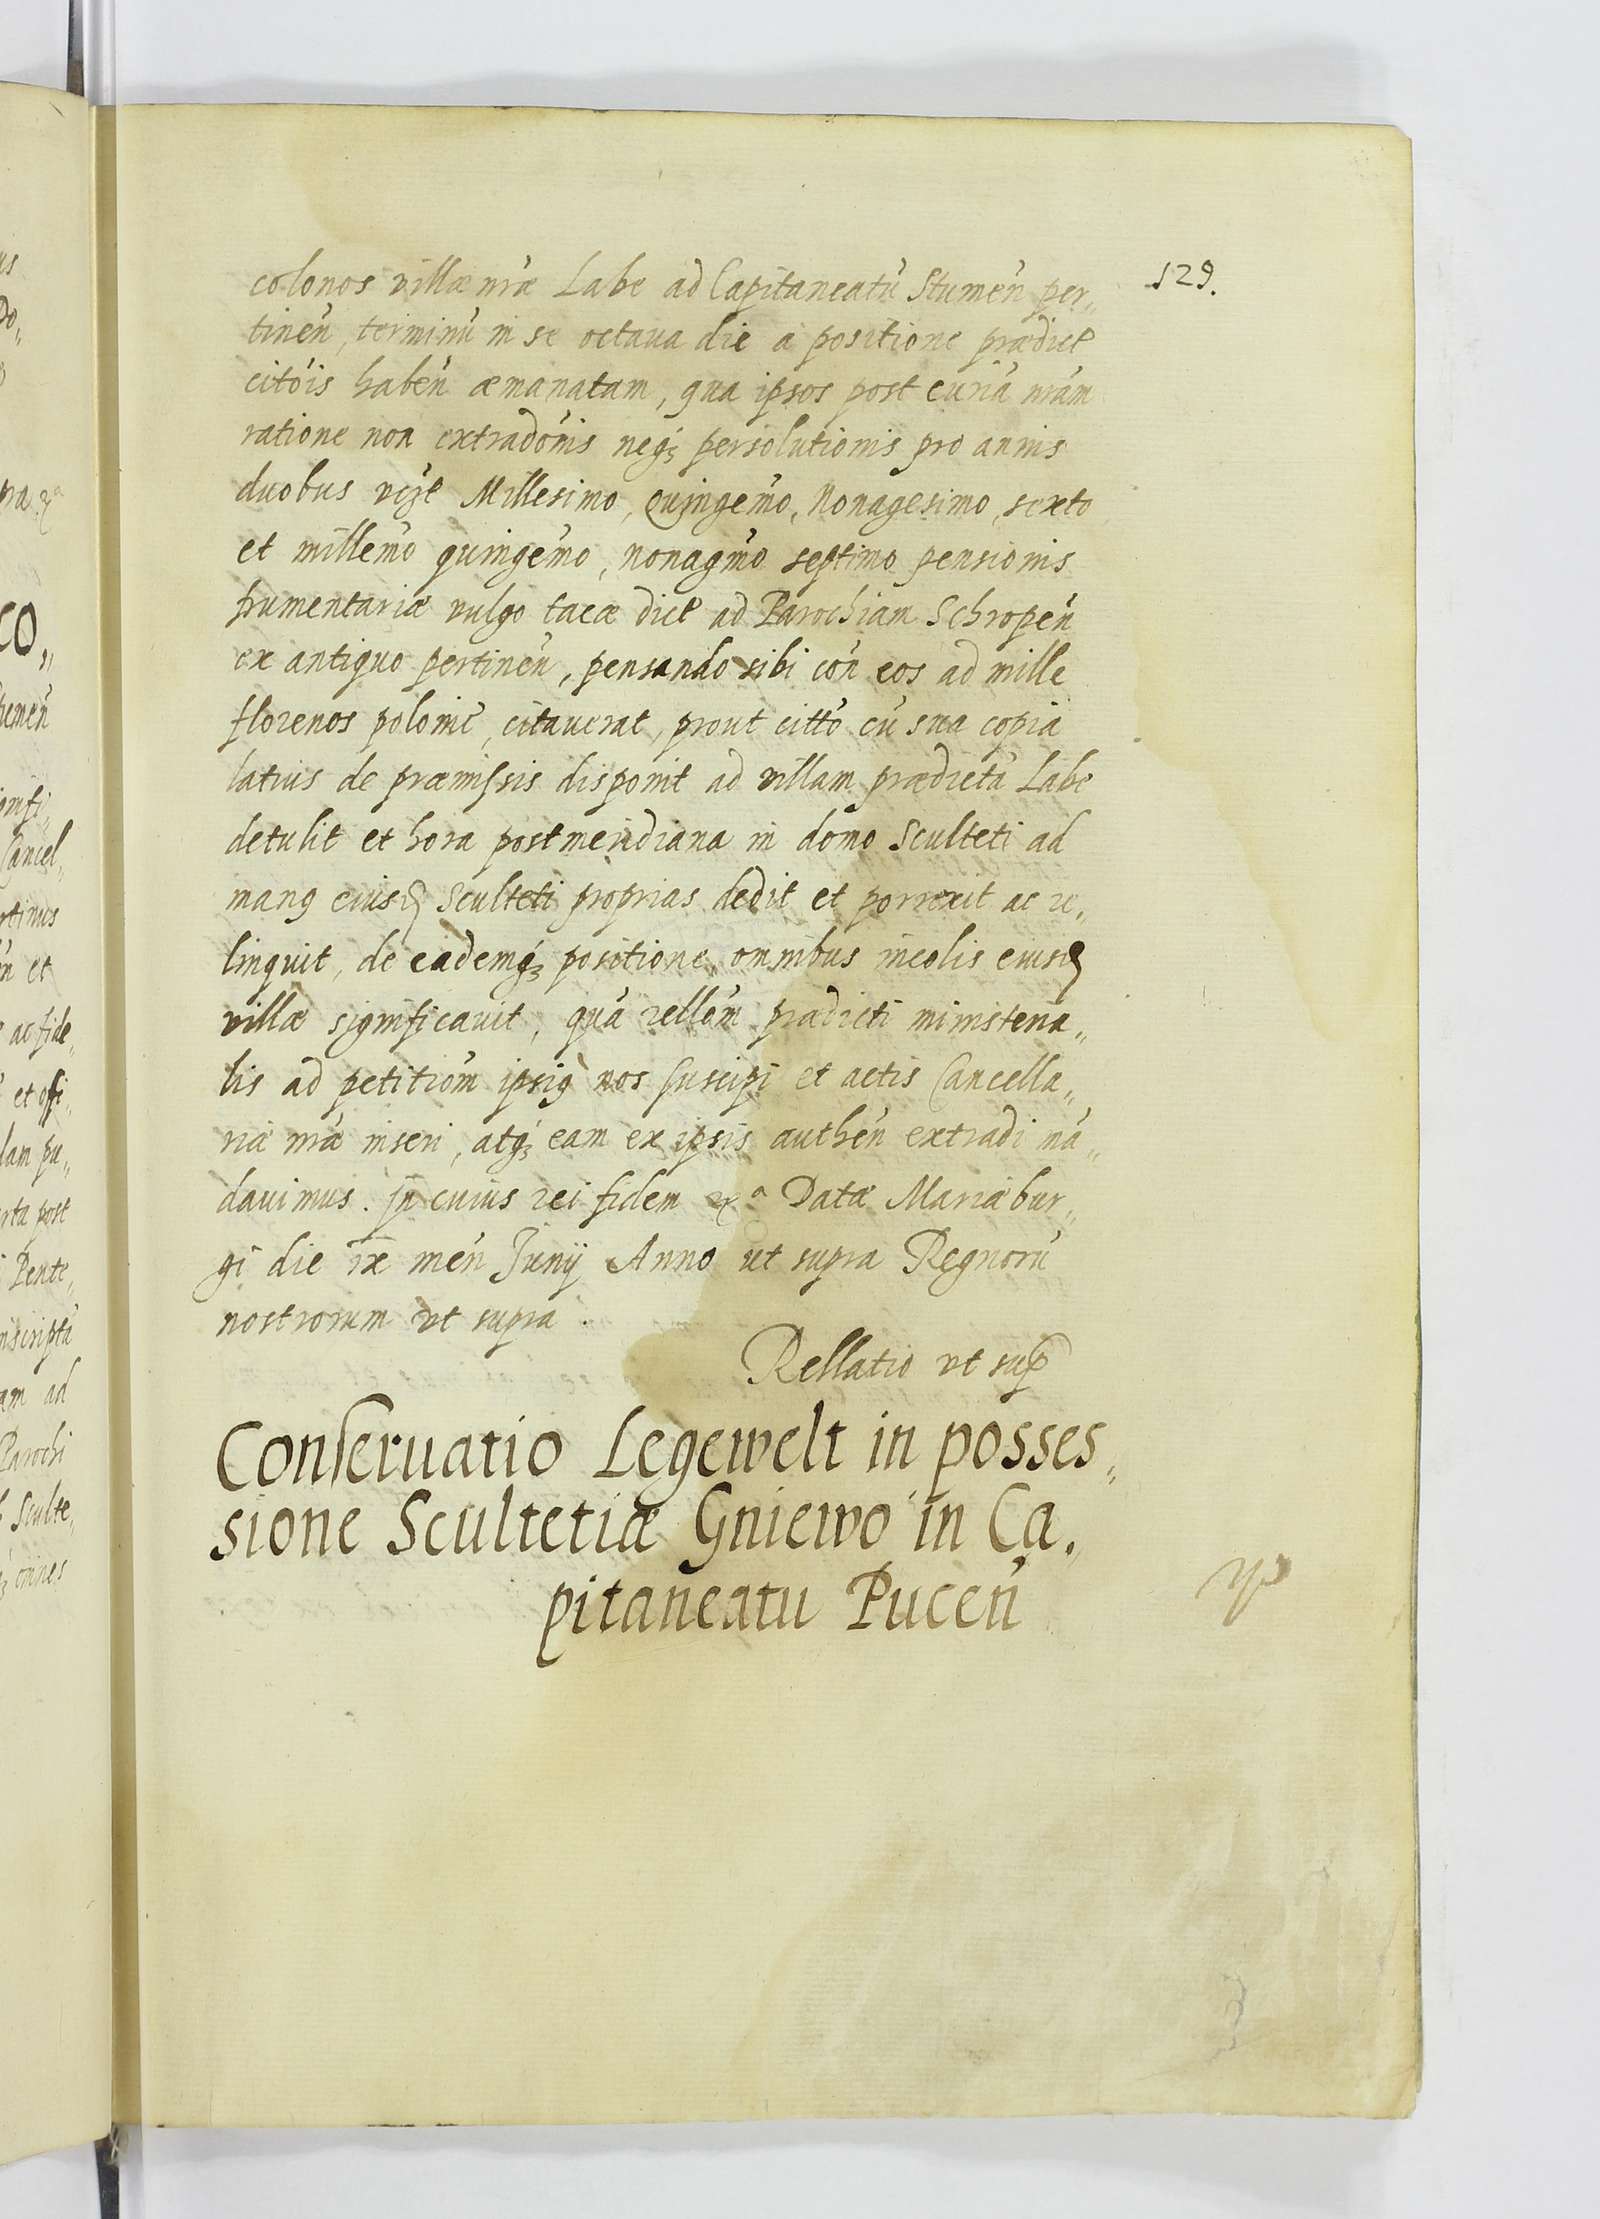 129.
colonos villæ nr̃æ Labe ad Capitaneatũ Stumeñ per„
tineñ, terminũ in se octaua die a positione prædict
citõis habeñ æmanatam, qua ipsos post curiã nrãm
ratione non extradõnis neq́ꝫ persolutionis pro annis
duobus vizt Millesimo, Quingemõ, Nonagesimo, sexto
et millemõ quingemõ, nonagmõ septimo pensionis
frumentariæ vulgo tacæ dict ad Parochiam Schropeñ
ex antiquo pertineñ, pensando sibi cõn eos ad mille
florenos polonic̃, citauerat, prout cittõ cũ sua copia
latius de præmissis disponit ad villam prædictã Labe
detulit et hora postmeridiana in domo Sculteti ad
manꝯ eiusd Sculteti proprias dedit et porrexit ac re„
linquit, de eademq́ꝫ positione omnibus incolis eiusd
villæ significauit, quã rellõm prædicti ministeria„
lis ad petitiõm ipsiꝯ nos suscipi et actis Cancella„
riæ nr̃æ inseri, atq́ꝫ eam ex ipsis autheñ extradi mã„
dauimus. In cuius rei fidem ꝛcª Datæ Mariæbur„
gi die ix meñ Junij Anno ut supra Regnorũ
nostrorum vt supra.
Rellatio vt sup
Conseruatio Legewelt in posses„
sione Scultetiæ Gniewo in Ca„
pitaneatu Puceñ